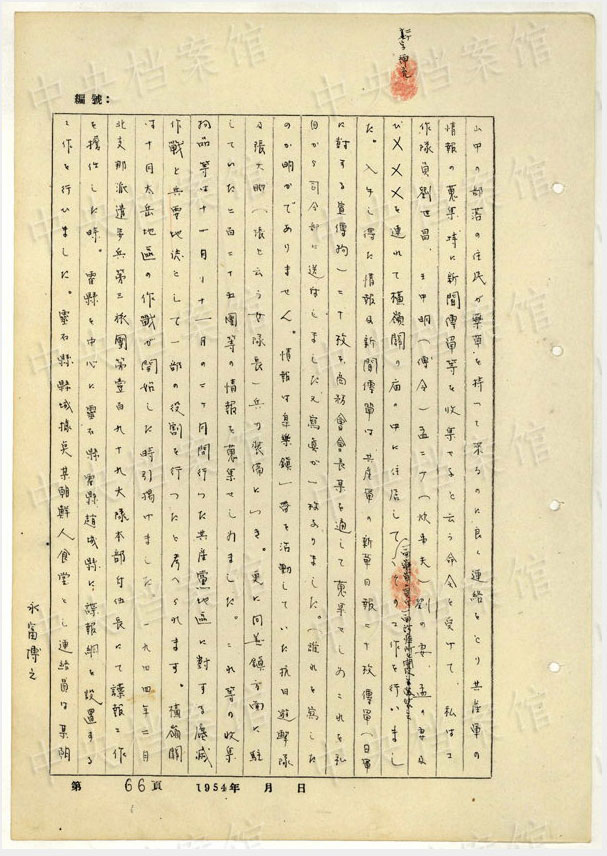 編號:
山中の部落の住民が藥草を持つて来るのに良く連絡をとり共産軍の
情報の蒐集特に新聞傳單等を收集せよと云う命令を受けて、私は工
作隊員劉世昌、王中明(傳令)孟二才(炊事夫)劉の妻孟の妻及
び×××を連れて橫嶺關の庙の中に住居して工作を行いまし
た。入手し得た情報及新聞傳單は共産軍の新華日報二十枚傳單(日軍
に対する宣傳物)二十枚を商務会会長某を通して蒐集せしめこれを私
自から司令部に送付しましたが寫真が一枚ありました。(誰れを寫した
のか明かでありません。情報は皋樂鎮一帯を活動していた抗日遊擊隊
る張大明(張と云う女隊長)兵の装備につき。更に同善鎮方面に駐
していた二百二十五團等の情報を蒐集せしめました。これ等の收集
物品等は十一月〜十二月の二ヶ月間行つた共産黨地區に対する滅
作戰と兵要地誌として一部の役割を行つたと考へられます。橫嶺關
は十月太岳地區の作戰が開始した時引揚げました 一九四四年二月
北支那派遣歩兵第三旅團第壹百九十九大隊本部付伍長にて諜報工作
を擔任した時。霍縣を中心に靈石縣霍縣趙城縣に、諜報網を設置する
工作を行いました。靈石縣縣城據奌某朝鮮人食堂とし連絡員は某朝
永富博之
第 66頁 1954年 月 日
中央档案馆